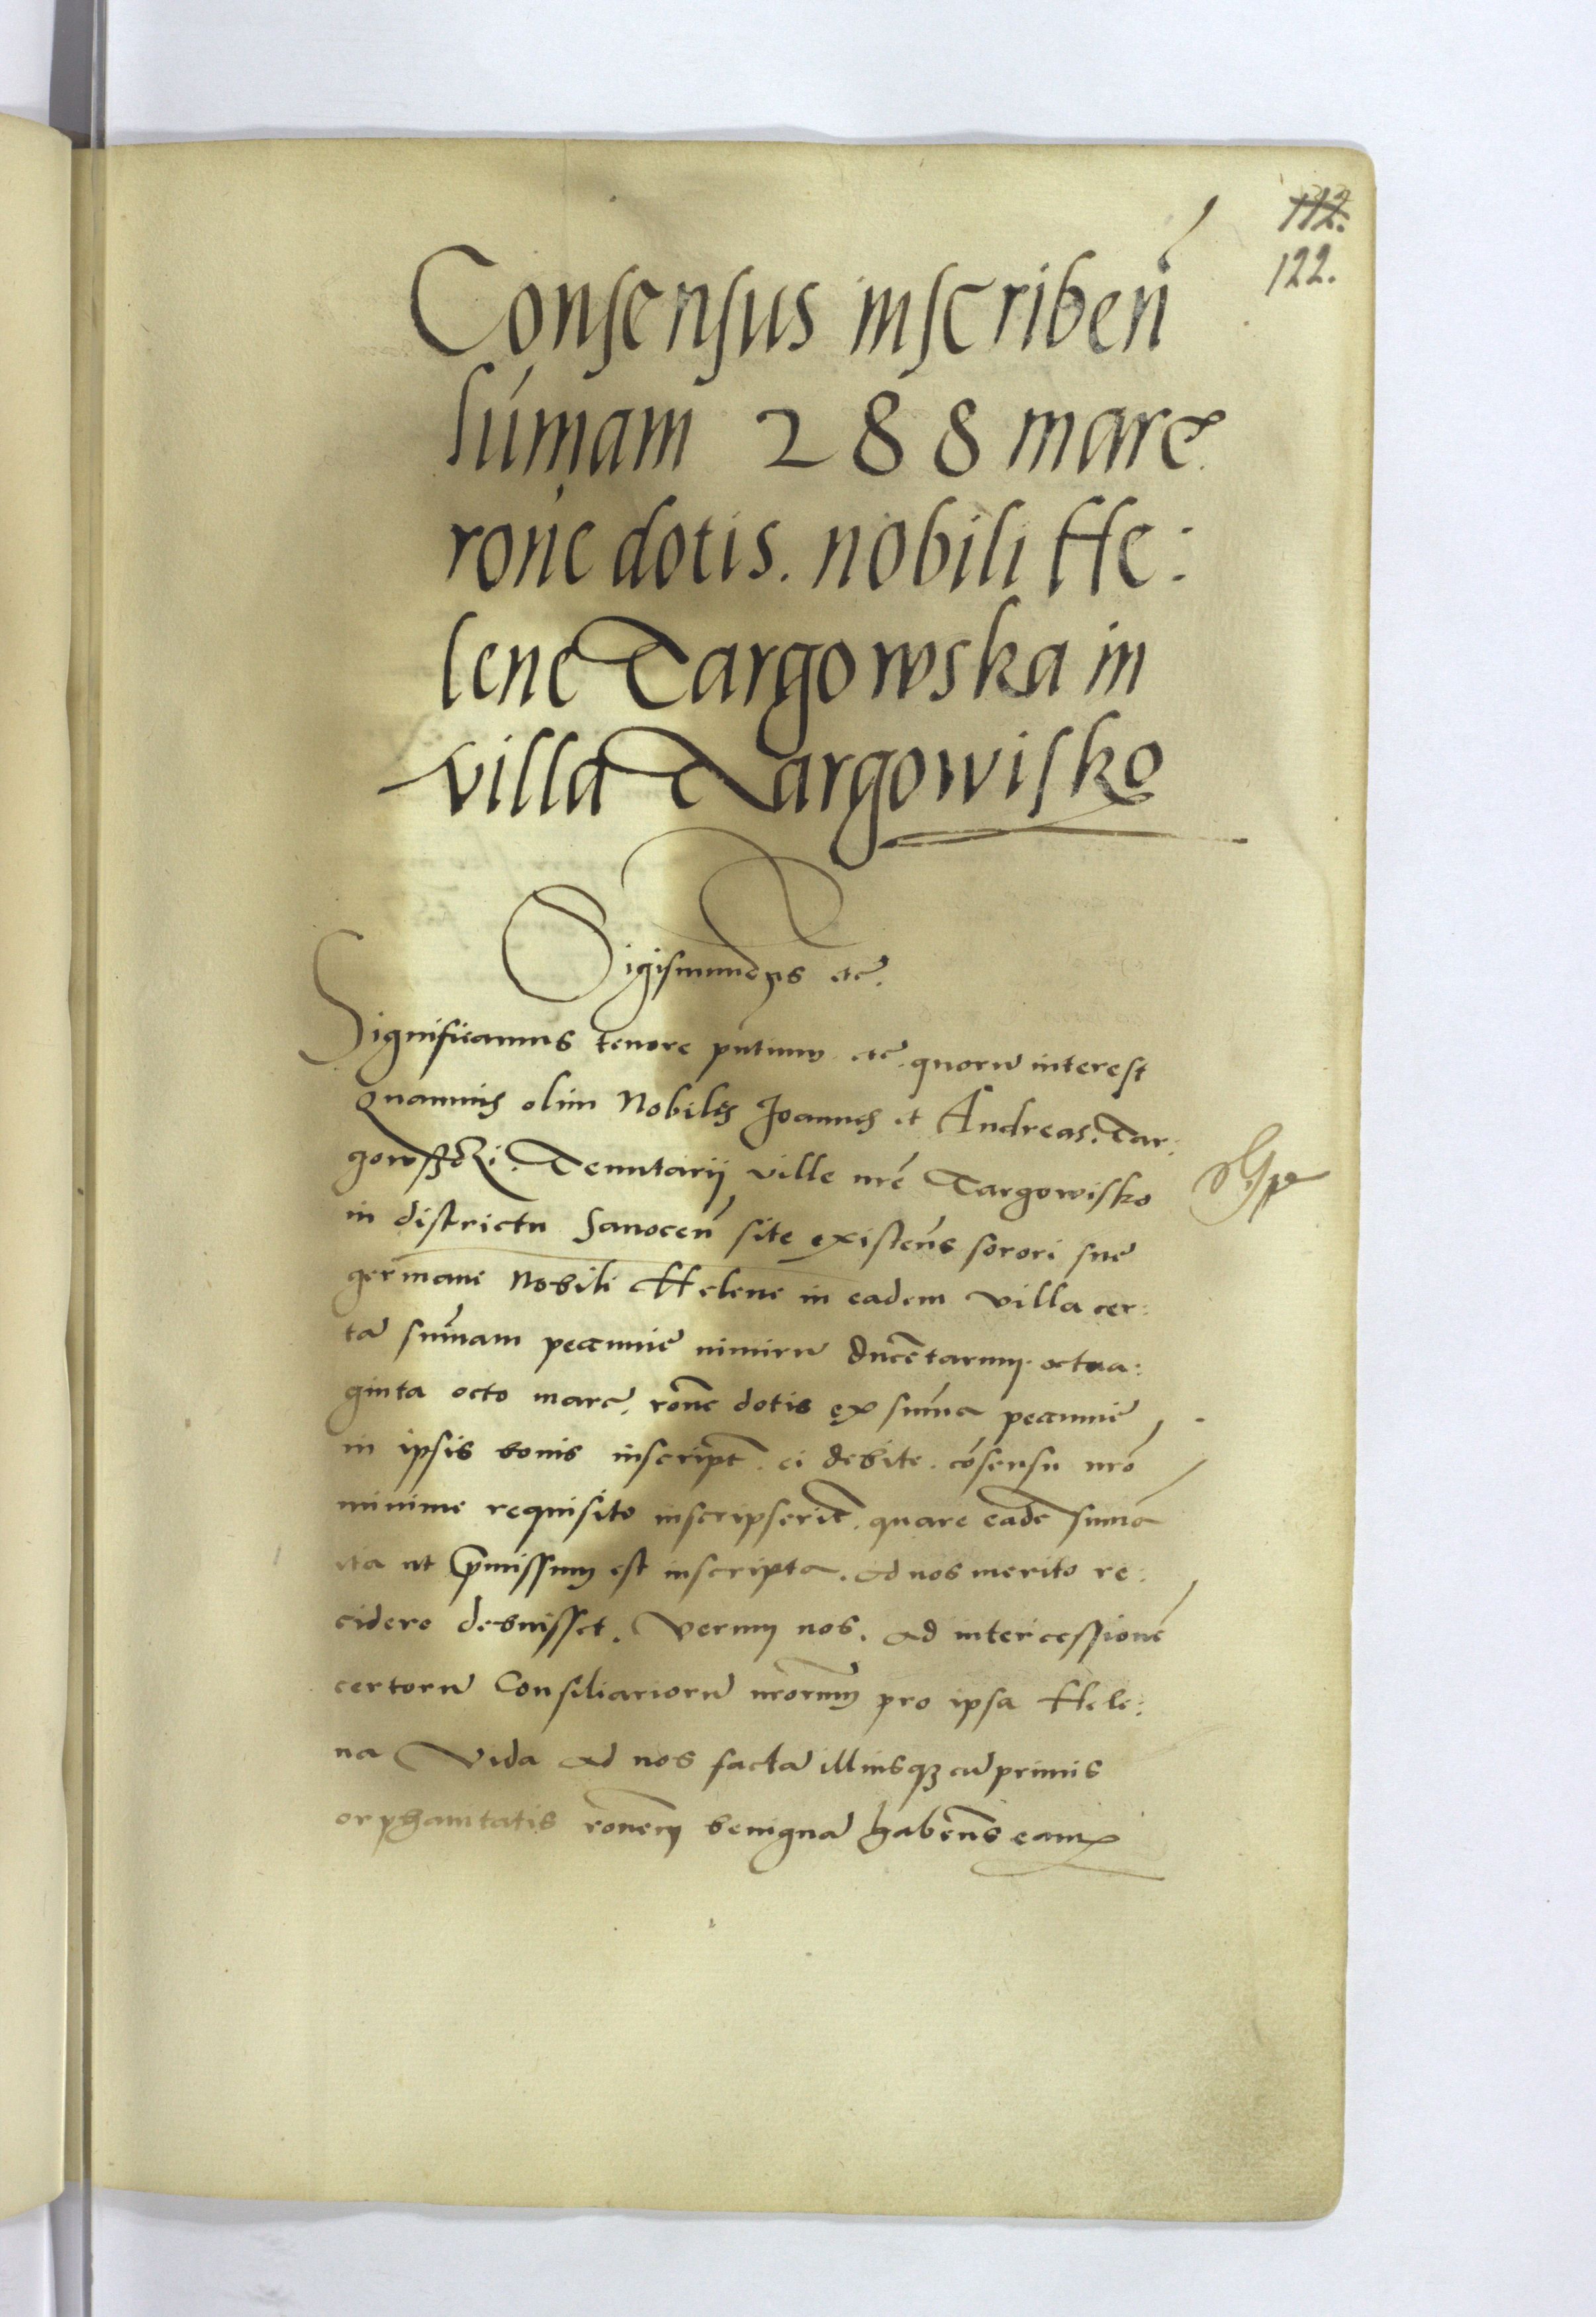 112.
122.
Consensus inscriben̄
sum̄am 288 marc
rone dotis. nobili He:
lene Targowska in
villa Targowisko
Sigismundus etc.
Significamus tenore pn̄tium etc. quorū interest
Quamuis olim Nobiles Joannes et Andreas. Tar:
gowsski. Tenutarij ville nrē Targowisko
in districtu Sanocen̄ site existen̄s sorori sue
germane Nobili Helene in eadem villa cer:
tā sum̄am pecunie nimirū ducētarum octua:
ginta octo marc. ron̄e dotis ex sum̄a pecunie
in ipsis bonis inscript. ei debite. cōsensu nrō
minime requisito inscripserīt. quare eadē sum̄a
ita ut p̄missum est inscripta. ad nos merito re:
cidere debuisset. Verum nos. ad intercessionē
certorū Consiliariorū nrōrum pro ipsa Hele:
na Vidᵃ ad nos factā illiusqꝫ cū primis
orphanitatis ron̄em benignā haben̄s eam